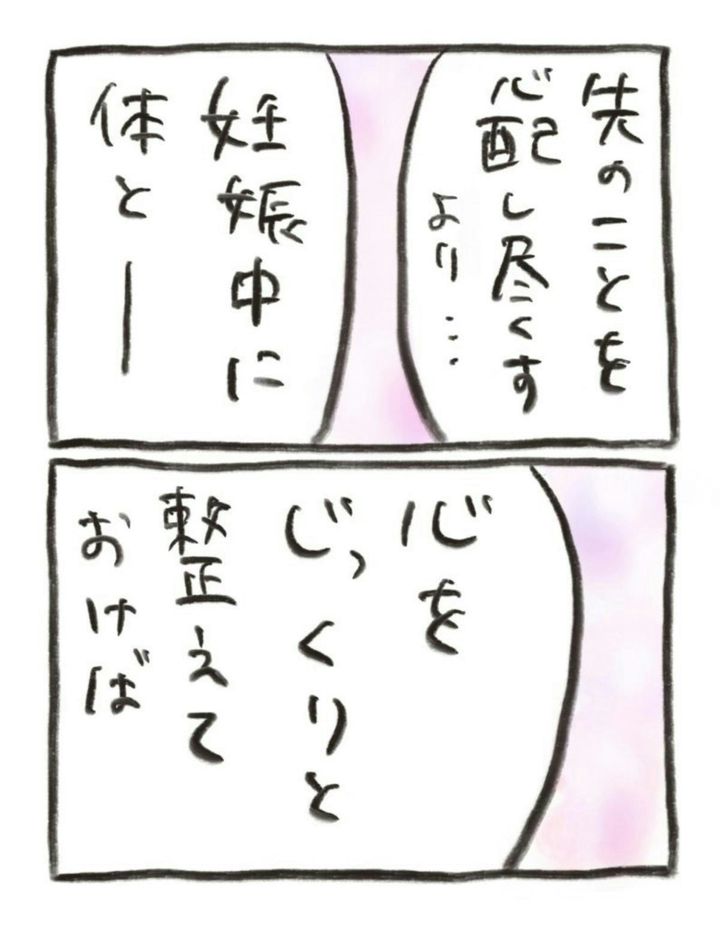 先のことを
心配し尽くす
より…
妊娠中に
体とー
心を
じっくりと
整えて
おけば